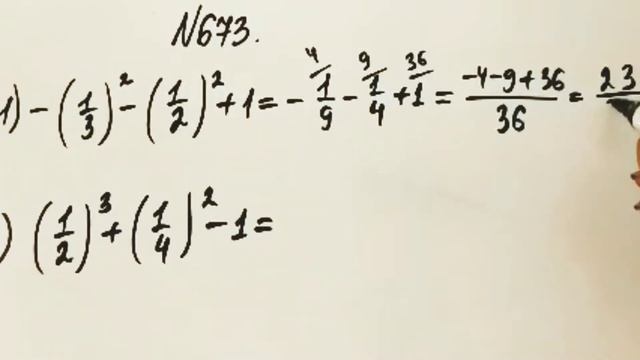 N673.
1) -(1/3)² - (1/2)² + 1 = - 1/9 ⁴ - 1/4 ⁹ + 1 ³⁶ = (-4-9+36)/36 = 23
) (1/2)³ + (1/4)² - 1 =